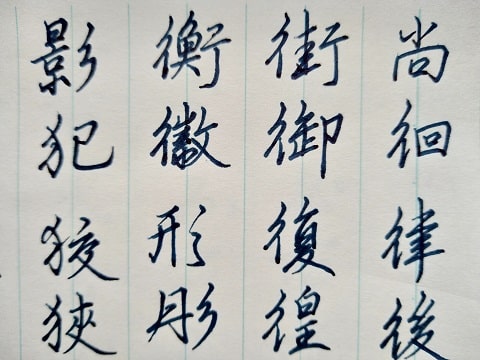 尚徊律後
街御復徨
衡徽形彤
影犯狡狹